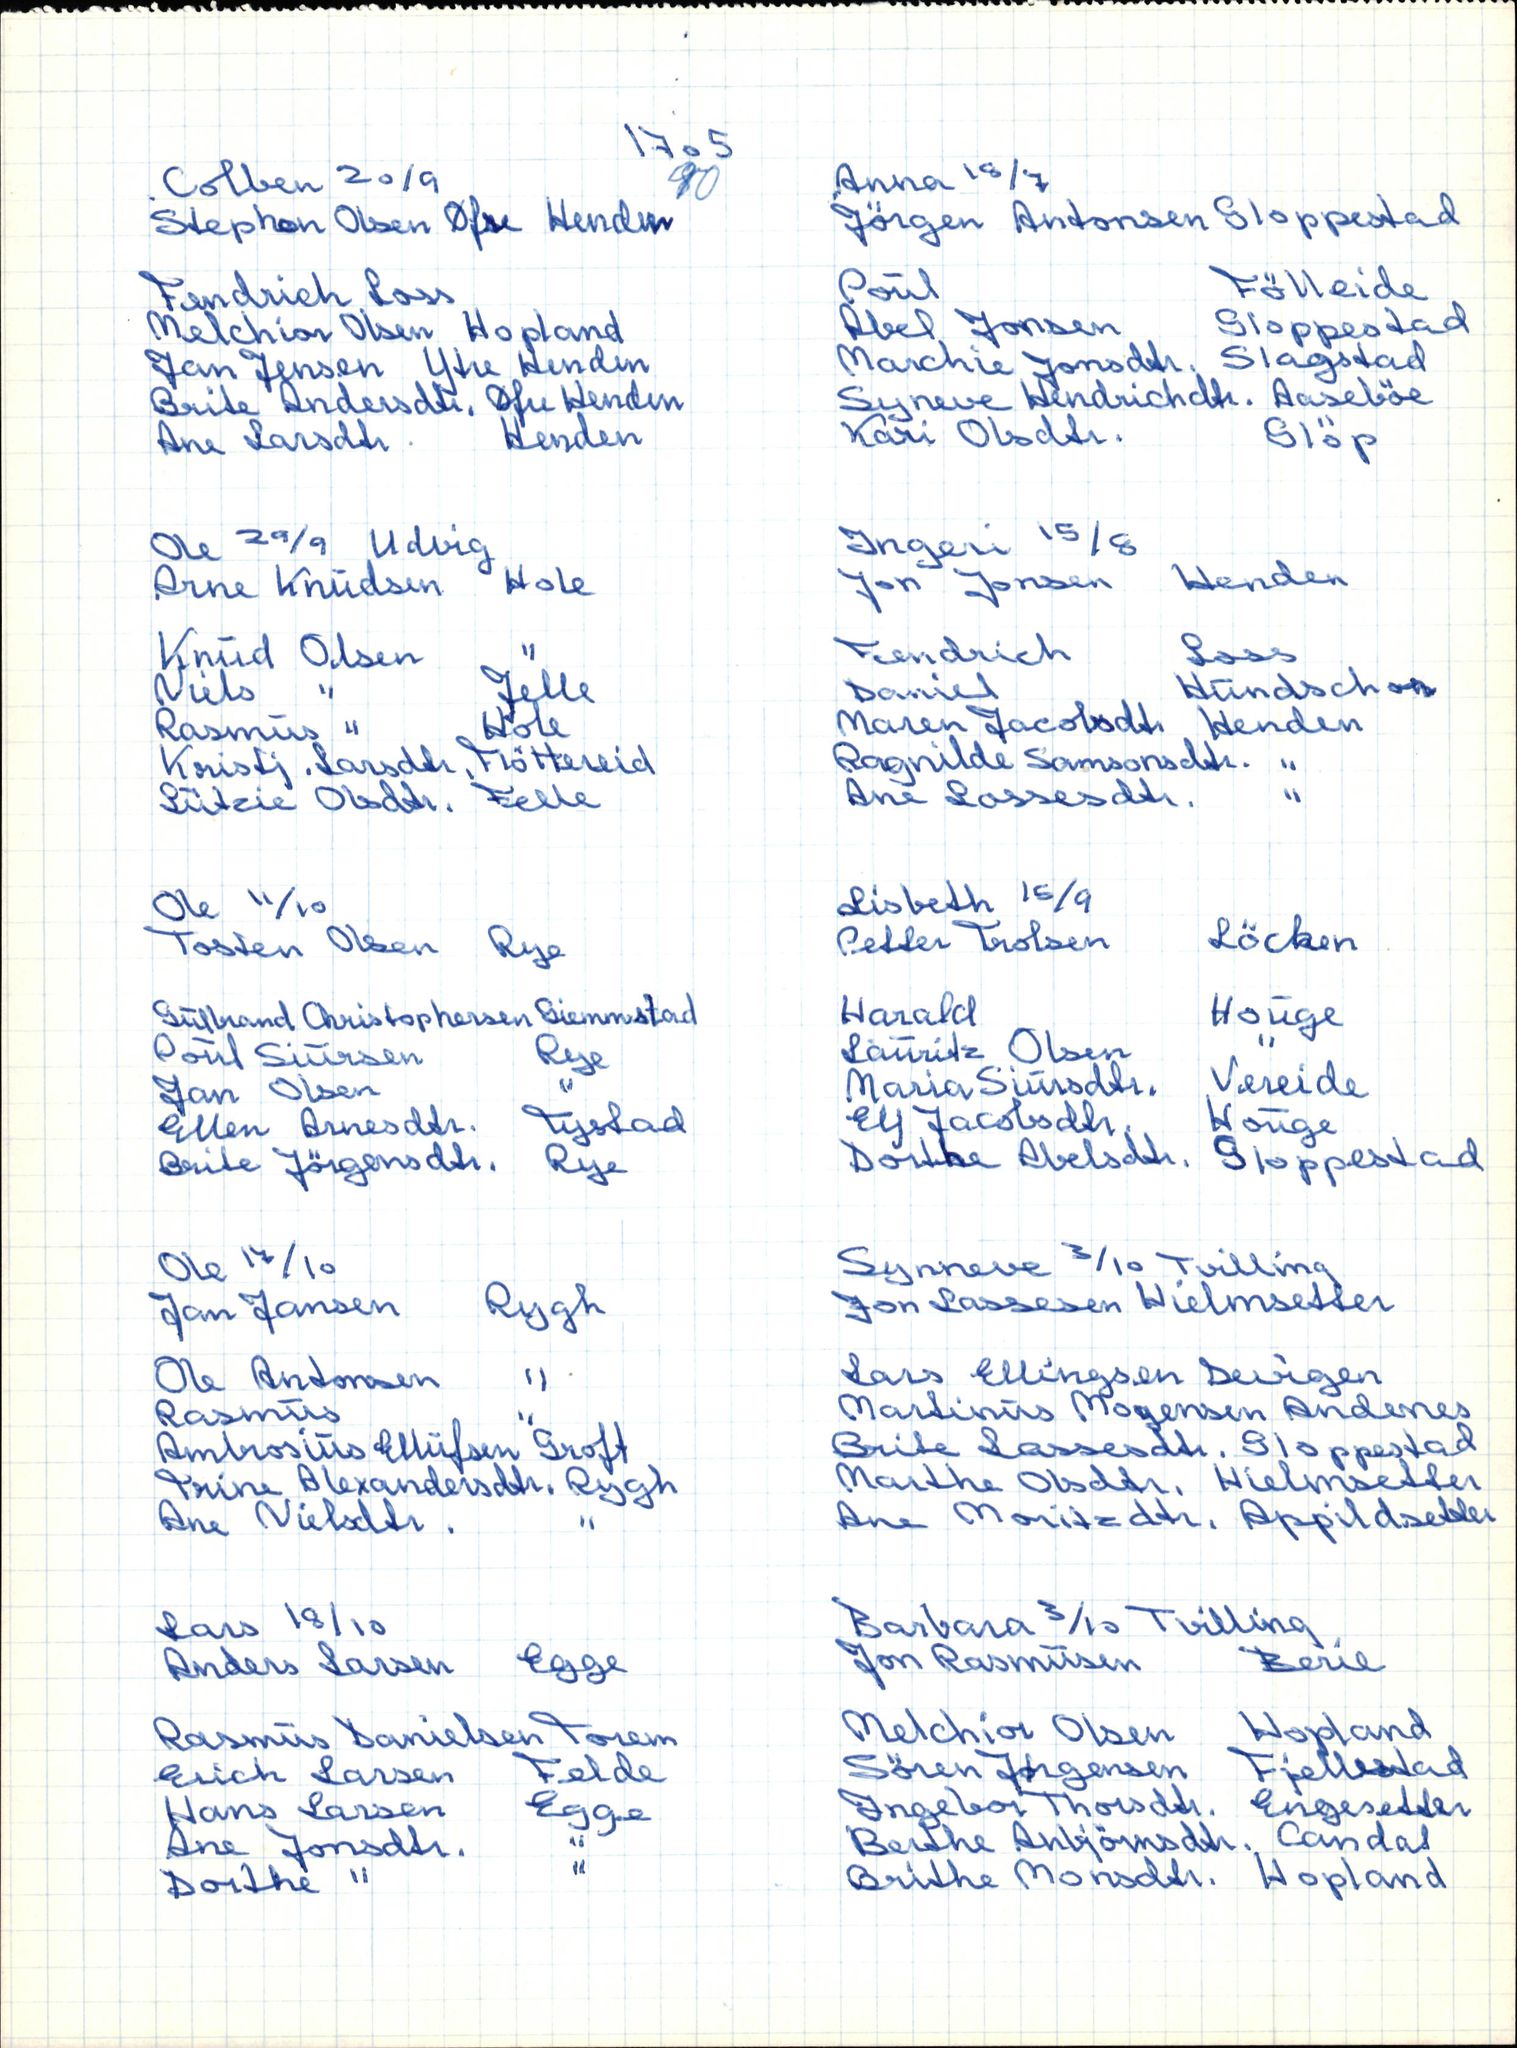 1705
Colben 20/9
Stephen Olsen Øfre Henden
Fendrich Loss
Melchior Olsen Hopland
Jan Jensen Ytre Henden
Brite Andersdtr. Øfre Henden
Ane Larsdtr. Henden
Ole 29/9 Udvig
Arne Knŭdsen Hole
Knŭd Olsen "
Niels " Jelle
Rasmŭs " Hole
Kristj. Larsdtr. Flöttereid
Lŭtzie Olsdtr. Felle
Ole 11/10
Tosten Olsen Rye
Gŭlbrand Christophersen Giemmestad
Poŭl Siŭrsen Rye
Jan Olsen "
Ellen Arnesdtr. Tystad
Brite Jörgensdtr. Rye
Ole 17/10
Jan Jansen Rygh
Ole Antonsen "
Rasmŭs "
Ambrosiŭs Ellŭfsen Groft
Trine Alexandersdtr. Rygh
Ane Nielsdtr. "
Lars 18/10
Anders Larsen Egge
Rasmŭs Danielsen Torem
Erich Larsen Felde
Hans Larsen Egge
Ane Jonsdtr. "
Dorthe " "
Anna 18/7
Jörgen Antonsen Gloppestad
Poŭl Fölleide
Abel Jonsen Gloppestad
Marchie Jonsdtr. Slagstad
Syneve Hendrichdtr. Aaseböe
Kari Olsdtr. Glöp
Ingeri 15/8
Jon Jonsen Henden
Fendrich Loss
Daniel Hŭndschon
Maren Jacobsdtr Henden
Ragnilde Samsonsdtr. "
Ane Lassesdtr. "
Lisbeth 15/9
Petter Trolsen Löcken
Harald Hoŭge
Laŭritz Olsen "
Maria Siŭrsdtr. Vereide
Elj Jacobsdtr. Hoŭge
Dorthe Abelsdtr. Gloppestad
Synneve 3/10 Tvilling
Jon Lassesen Hielmsetter
Lars Ellingsen Devigen
Martinŭs Mogensen Andenes
Brite Lassesdtr. Gloppestad
Marthe Olsdtr. Hielmsetter
Ane Moritzdtr. Appildsetter
Barbara 3/10 Tvilling
Jon Rasmŭsen Berie
Melchior Olsen Hopland
Sören Jørgensen Fjellestad
Ingebor Thorsdtr. Engesetter
Berthe Anbjörnsdtr. Candal
Brithe Monsdtr. Hopland